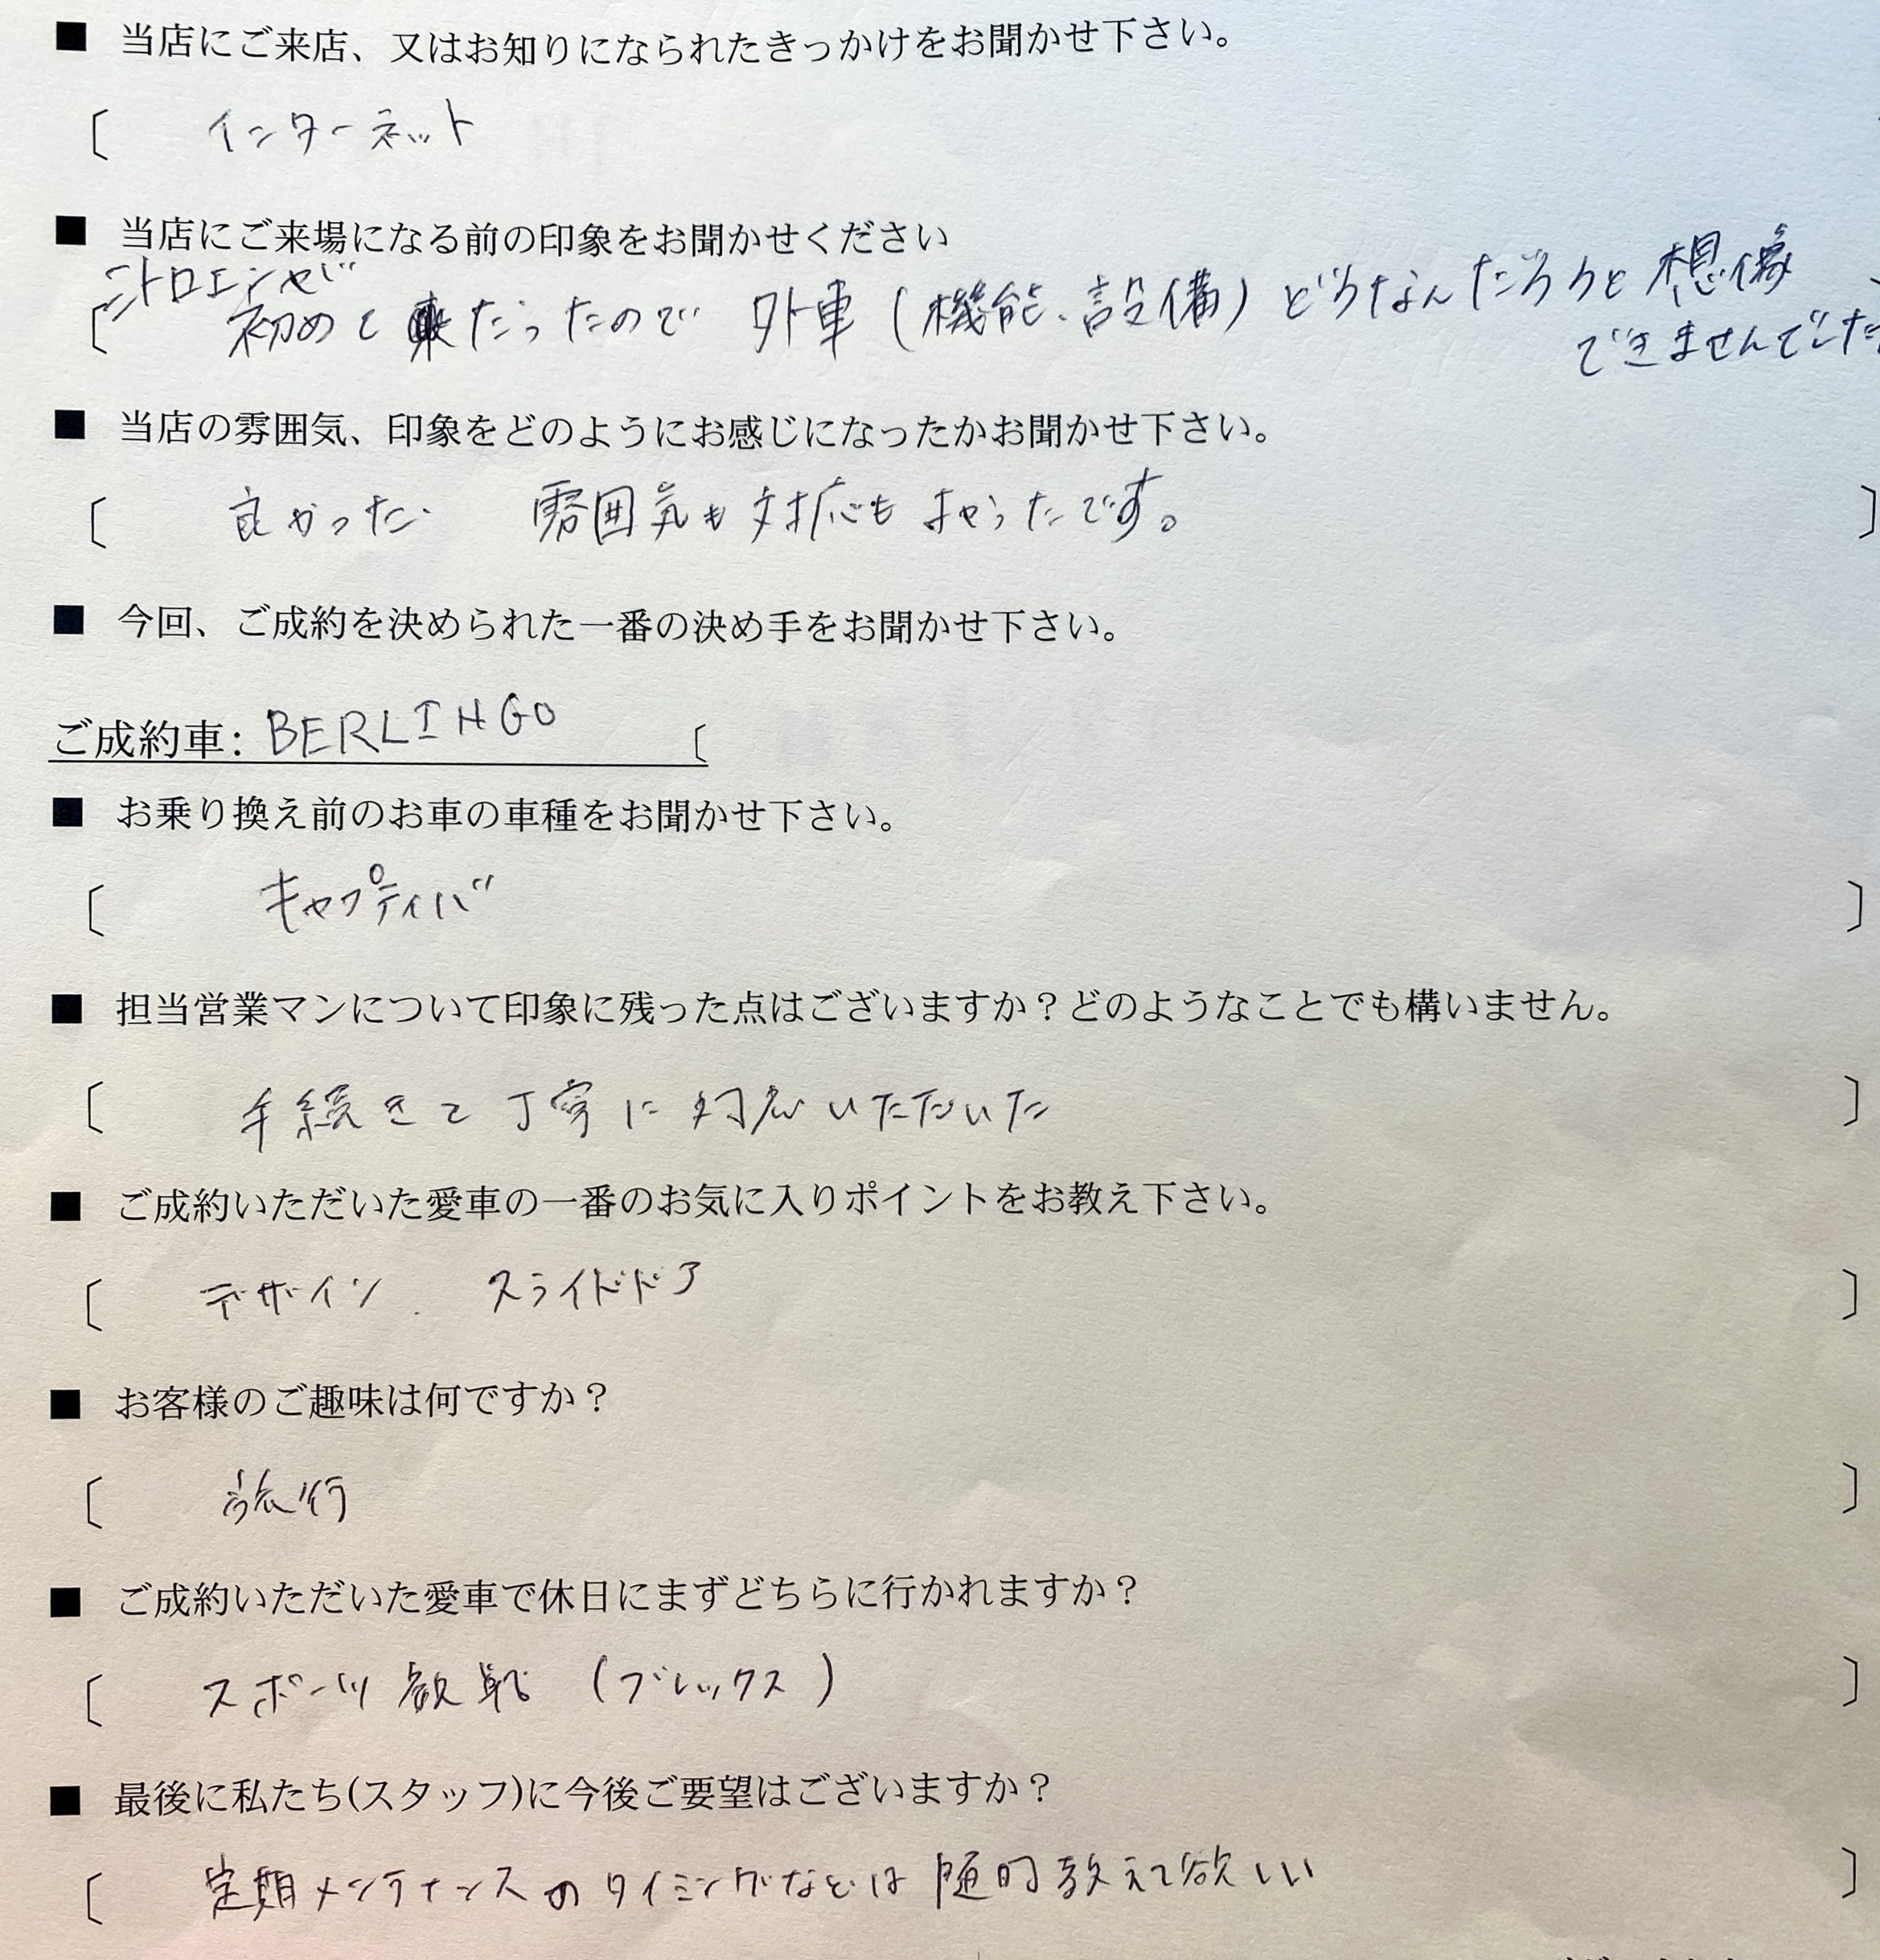 ■ 当店にご来店、又はお知りになられたきっかけをお聞かせ下さい。
〔 インターネット
■ 当店にご来場になる前の印象をお聞かせください
シトロエンが
〔 初めて だったので 外車(機能、設備)どうなんだろうと想像
できませんでした
■ 当店の雰囲気、印象をどのようにお感じになったかお聞かせ下さい。
〔 良かった 雰囲気も対応もよかったです。 〕
■ 今回、ご成約を決められた一番の決め手をお聞かせ下さい。
ご成約車: BERLINGO 〔
■ お乗り換え前のお車の車種をお聞かせ下さい。
〔 キャプティバ 〕
■ 担当営業マンについて印象に残った点はございますか？どのようなことでも構いません。
〔 手続きで丁寧に対応いただいた 〕
■ ご成約いただいた愛車の一番のお気に入りポイントをお教え下さい。
〔 デザイン . スライドドア 〕
■ お客様のご趣味は何ですか？
〔 旅行 〕
■ ご成約いただいた愛車で休日にまずどちらに行かれますか？
〔 スポーツ観戦 (ブレックス) 〕
■ 最後に私たち(スタッフ)に今後ご要望はございますか？
〔 定期メンテナンスのタイミングなどは随時教えて欲しい 〕